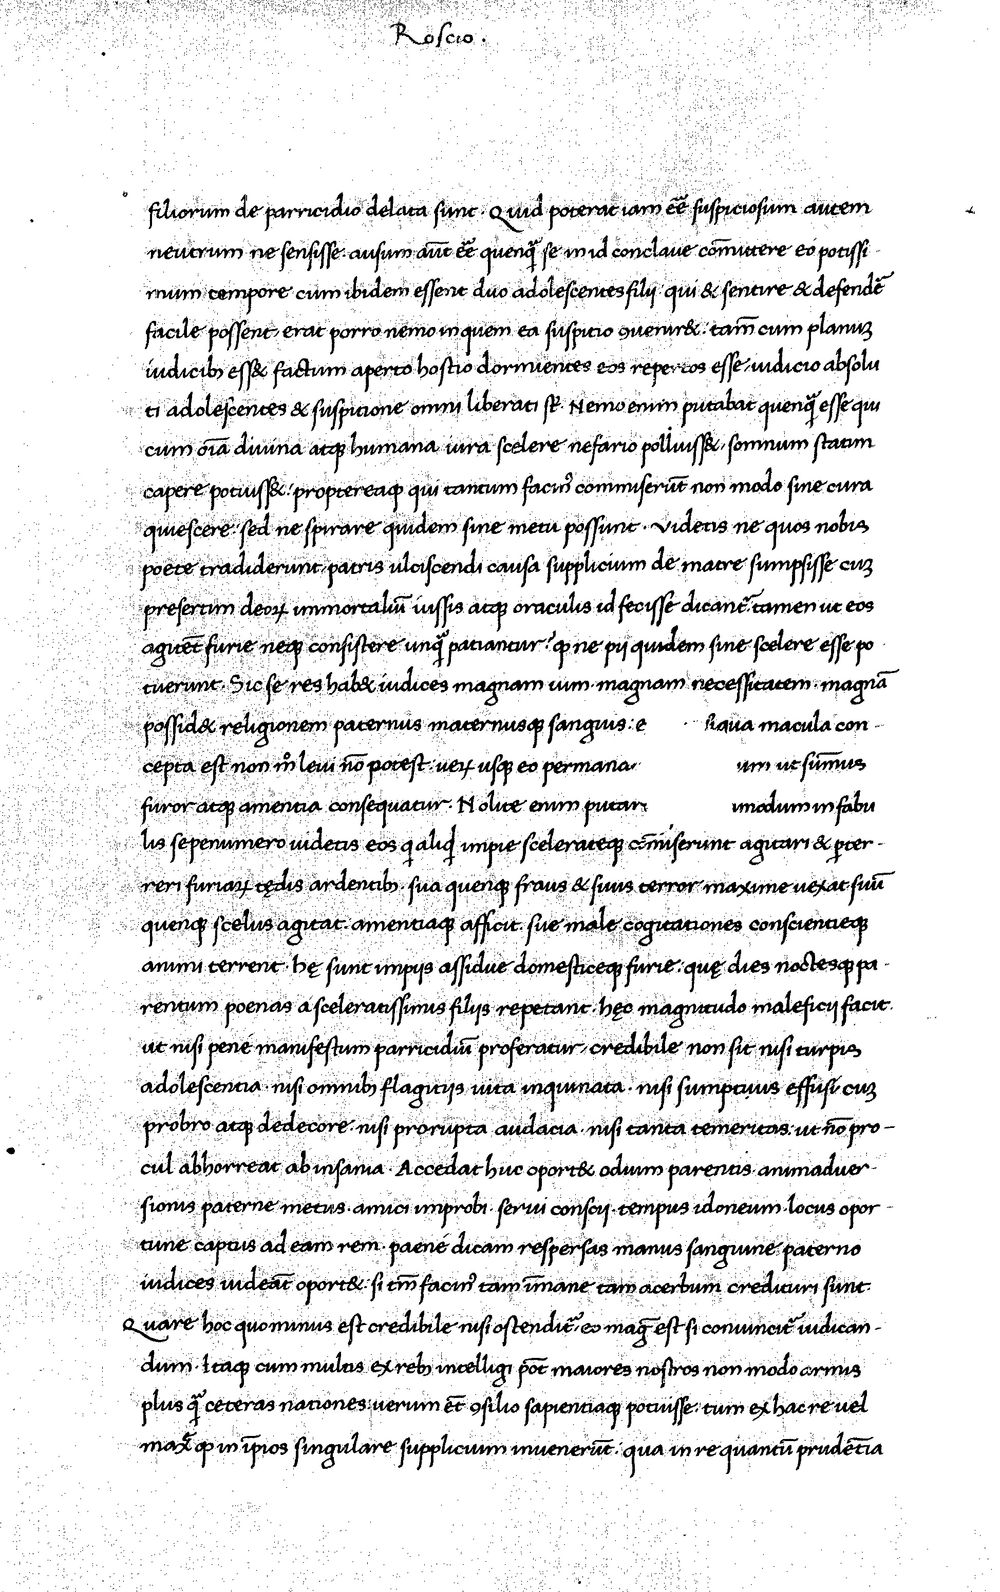 Roscio.
filiorum de parricidio delata sunt. Quid poterat iam eē̄ suspiciosum autem
neutrum ne sensisse. ausum aūt eē̄ quenq̄ se in id conclaue com̄ittere eo potissi
mum tempore cum ibidem essent duo adolescentes filii qui & sentire & defendē̄
facile possent. erat porro nemo in quem ea suspitio ꝯuenir&. tam̄ cum planuꝫ
iudicibꝫ ess& factum aperto hostio dormientes eos repertos esse. iudicio absolu
ti adolescentes & suspitione omni liberati st̄. Nemo enim putabat quenq̄ esse qui
cum oīa diuina atqꝫ humana iura scelere nefario polluiss&. somnum statim
capere potuiss&. proptereaꝙ qui tantum facin᾽ commiserūt non modo sine cura
quiescere. sed ne spirare quidem sine metu possunt. Videtis ne quos nobis
poete tradiderunt. patris ulciscendi causa supplicium de matre sumpsisse cuꝫ
presertim deoꝝ immortaliū iussis atqꝫ oraculis id fecisse dicant᾽. tamen ut eos
agitēt furie neqꝫ consistere unq̄ patiantur. ꝙ ne pii quidem sine scelere esse po
tuerunt. Sic se res hab& iudices magnam uim. magnam necessitatem. magnā
possid& religionem paternus maternusqꝫ sanguis. e qua macula con-
cepta est non m̊ leui nō potest. ueꝝ usqꝫ eo permana um ut sūmus
furor atqꝫ amentia consequatur. Nolite enim putar modum in fabu
lis sepenumero uidetis eos qi aliqd impie scelerateqꝫ com̄iserunt agitari & ꝑter-
reri furiaꝝ tędis ardentibꝫ. sua quenqꝫ fraus & suus terror maxime uexat suū
quenqꝫ scelus agitat. amentiaqꝫ afficit. sue male cogitationes conscientieqꝫ
animi terrent. hę sunt impiis assidue domesticeqꝫ furie. quę dies noctesqꝫ pa-
rentum poenas a sceleratissimis filiis repetant. hęc magnitudo maleficii facit.
ut nisi pene manifestum parricidiū proferatur. credibile non sit nisi turpis
adolescentia. nisi omnibꝫ flagitiis uita inquinata. nisi sumptuus effusi cuꝫ
probro atqꝫ dedecore. nisi prorupta audacia. nisi tanta temeritas. ut nō pro-
cul abhorreat ab insania. Accedat huc oport& odium parentis. animaduer-
sionis paterne metus. amici improbi. serui conscii. tempus idoneum. locus opor-
tune captus ad eam rem. paene dicam respersas manus sanguine paterno
iudices uideāt oport&. si tm̄ facin᾽ tam īmane tam acerbum credituri sunt.
Quare hoc quo minus est credibile nisi ostendit᾽. eo mag̅ est si conuincit᾽ uidican-
dum. Itaqꝫ cum multis ex rebꝫ intelligi pōt maiores nostros non modo armis
plus q̄ ceteras nationes. uerum ēt ꝯsilio sapientiaqꝫ potuisse. tum ex hac re uel
max̄ ꝙ in īpios singulare supplicium inuenerūt. qua in re quantū prudētia